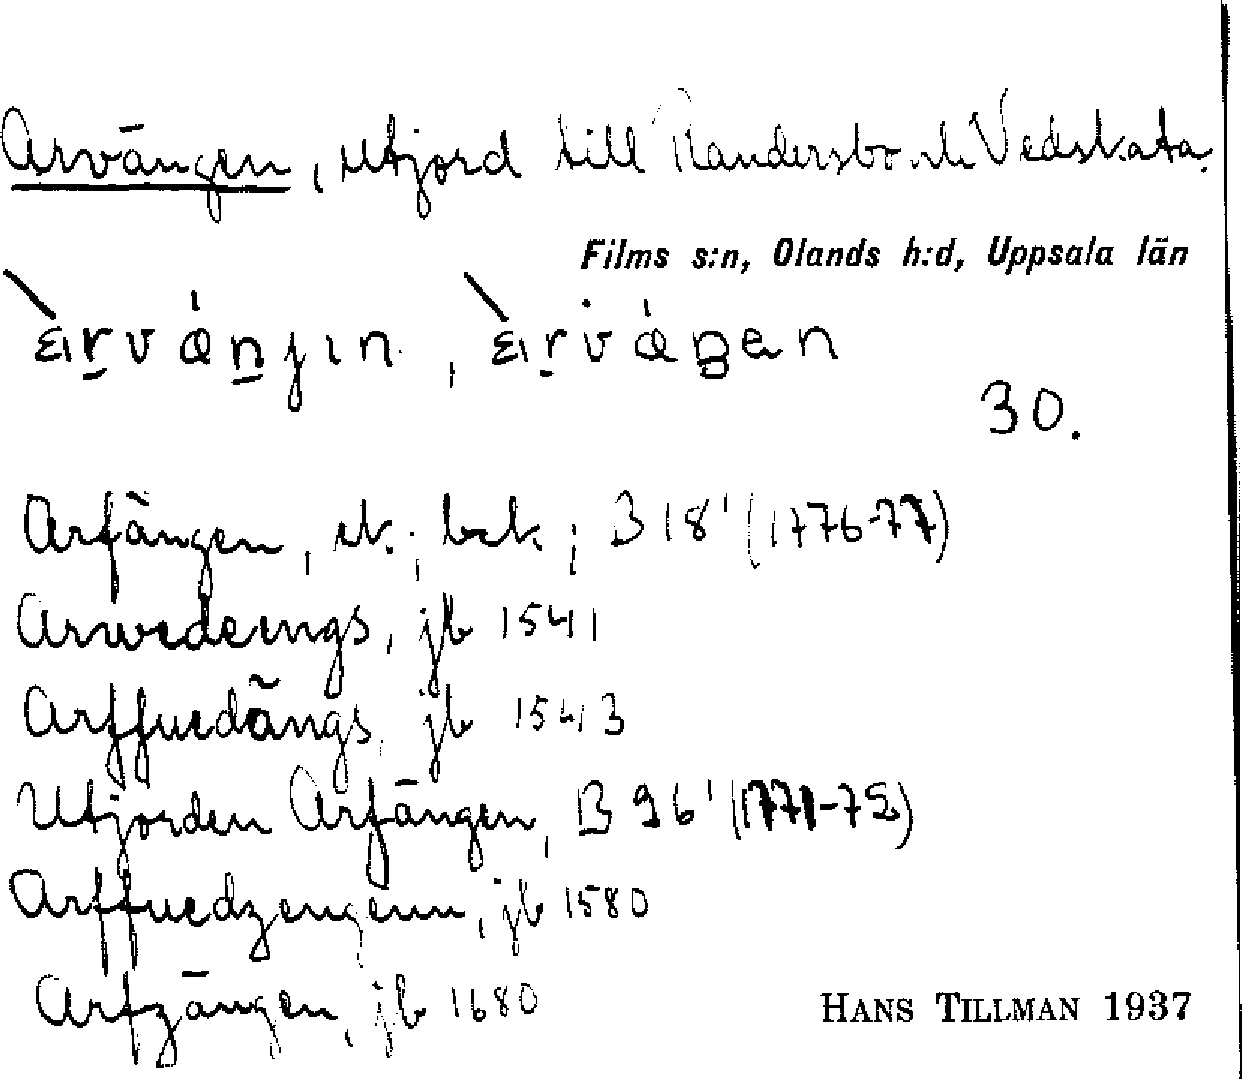 Arvängen, utjord till Randersbo och Vedskata.
Films s:n, Olands h:d, Uppsala län
30.
Arfängen, ut.; bck.; B 18' (1776-77)
Arwedengs, jb 1541
Arffuedängs, jb 1543
Utjorden Arfängen, B 96' (1771-72)
Arffuedzengenn, jb 1580
Arfzängen, jb 1680
HANS TILLMAN 1937